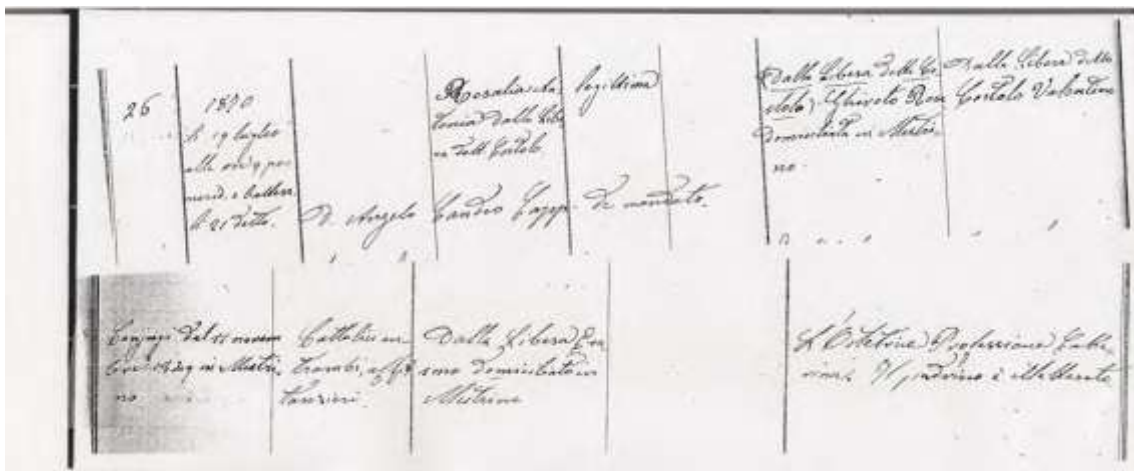 26
1870
li 19 luglio
alle ore 9 po
merid. e battezz.
li 21 detto.
Rosalia An
tonia Dalla Libe
ra dett Bortolo
legittima
Dalla Libera detto Bo
rtolo, Ghiroto Rosa
domiciliata in Mestri
no.
Dalla Libera detto
Bortolo Valentino
D. Angelo Candeo Capp. di mandato.
Conjugi dal 11 novem
bre in Mestri
no
Cattolici en
trambi,
Dalla Libera Era
smo domiciliato in
Mestrino
L'Ostetrice Professione
Il padrino è illetterato